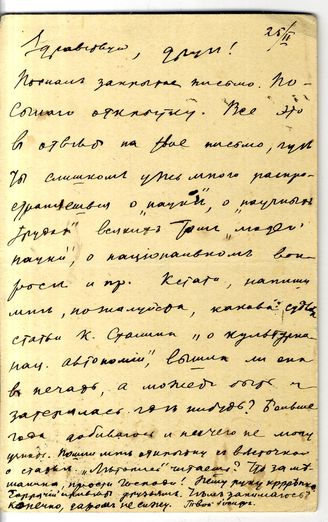 25/II
Здравствуй, друг!
Послал закрытое письмо. По-
сылаю открытку. Все это
в ответ на твое письмо, где
ты слишком уж много распро-
страняешься о "науке", о "научных
трудах" всяких там "людей
науки", о национальном воп-
росе и пр. Кстати, напиши
мне, пожалуйста, какова судьба
статьи К. Сталина "о культурно-
нац. автономии", вышла ли она
в печать, а может быть и
затерялась где нибудь? Больше
года добиваюсь и ничего не могу
узнать. Пошли мне открытку и весточкой
о статье. "Летопись" читаешь? Что за
прости господи! Жму руку крепко
Горячий привет друзьям. Чем занимаюсь?
Конечно, даром не сижу. Твой Иосиф.